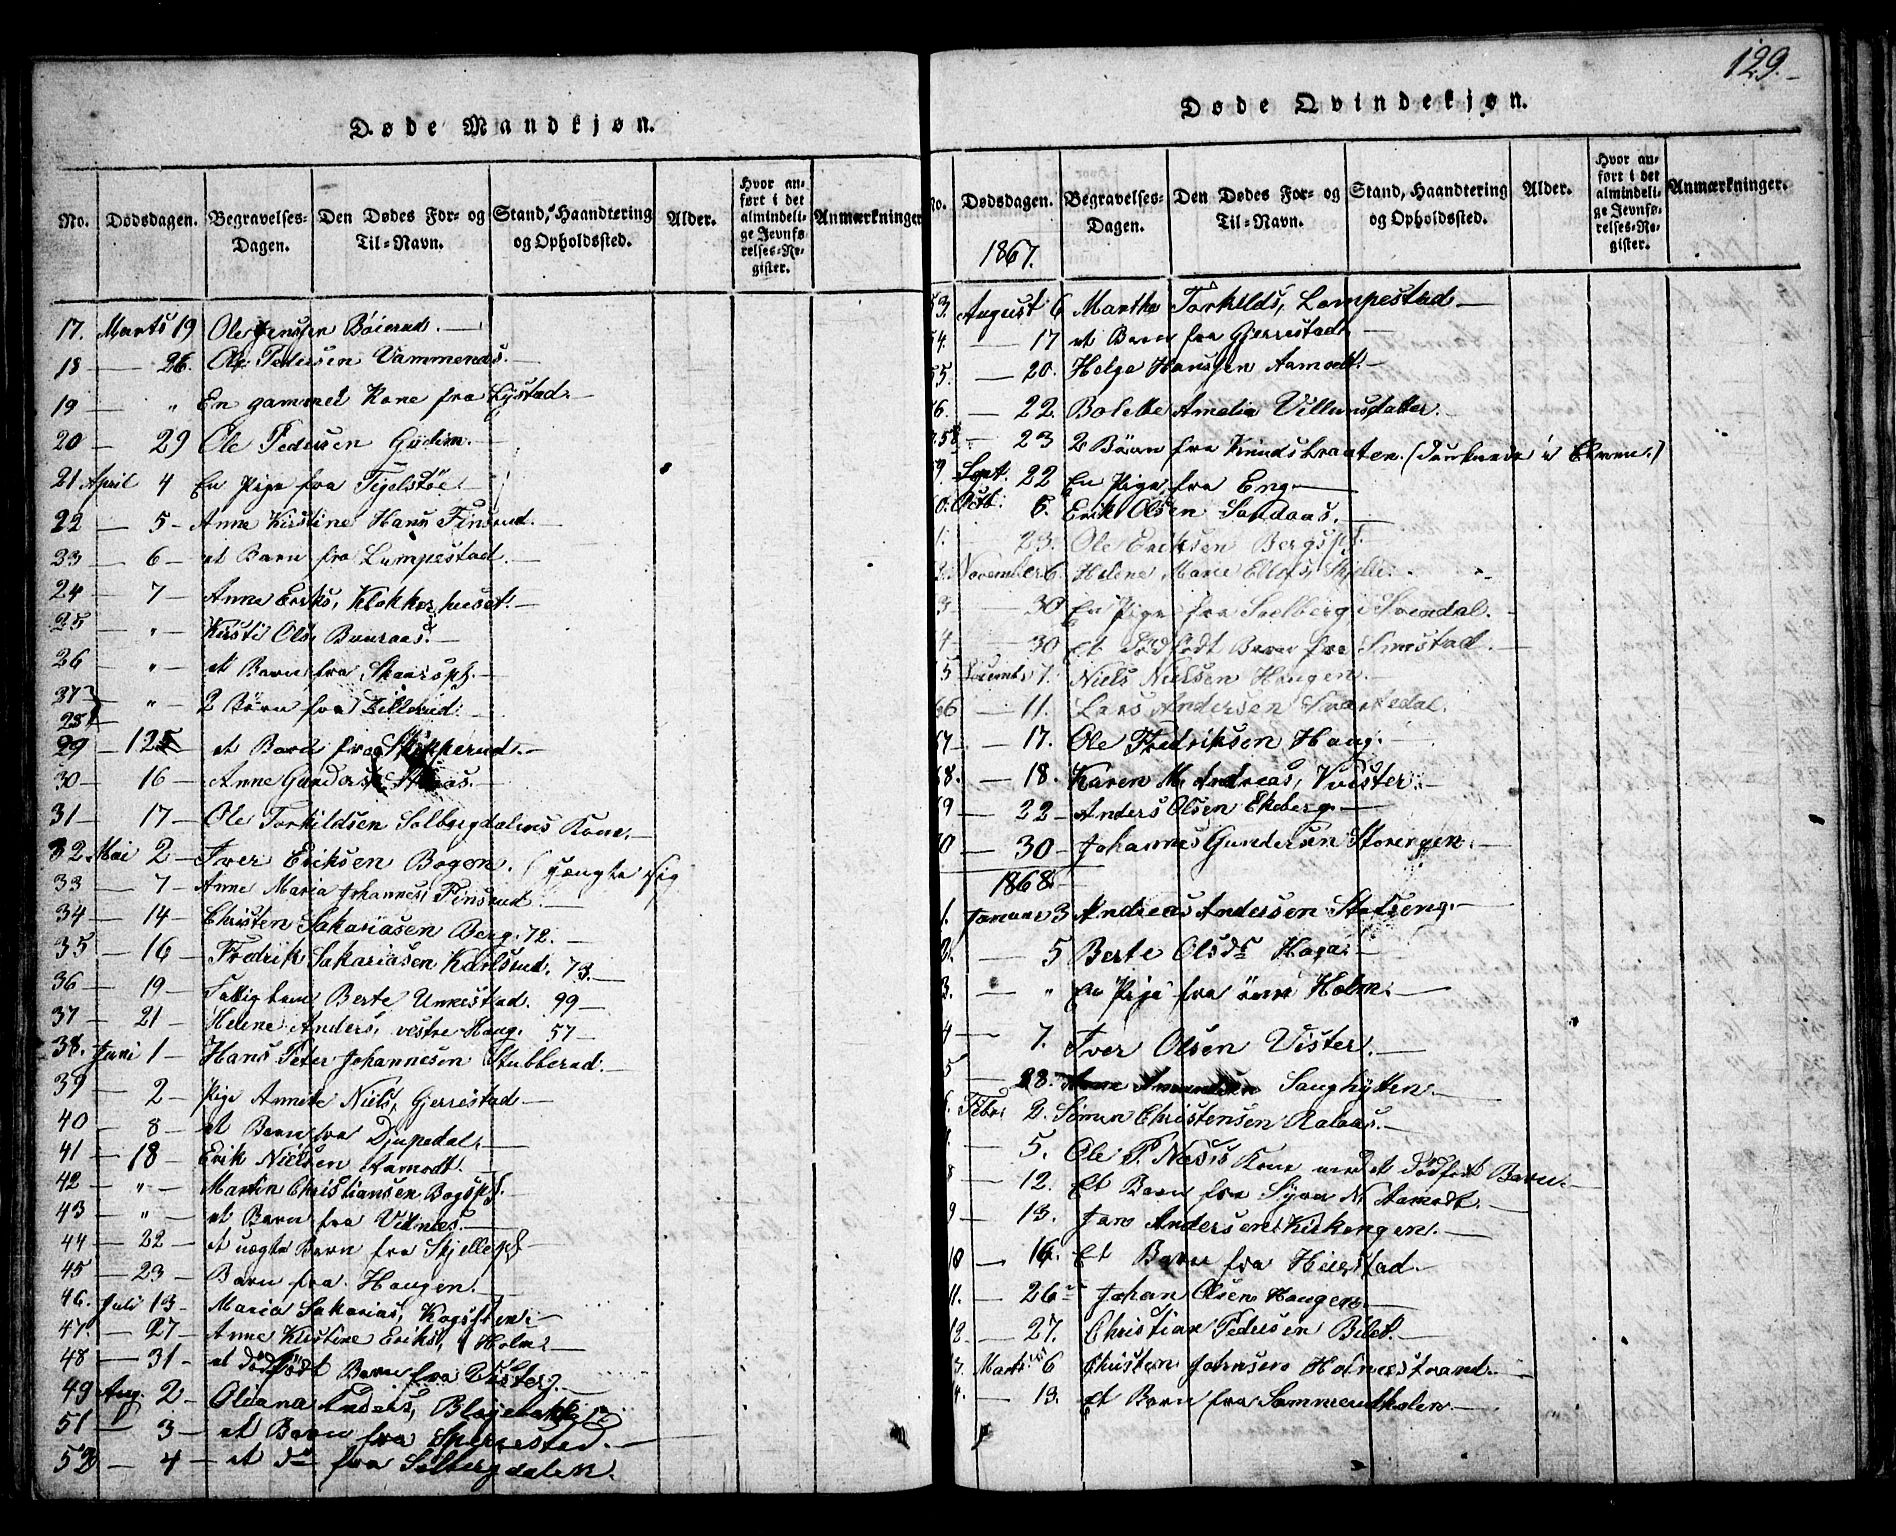 129.
Døde Mandkjøn.
No. Dødsdagen. Begravelses-Dagen. Den Dødes For- og Til-Navn. Stand, Haandtering og Opholdssted. Alder. Hvor anført i det almindelige Jevnførelses-Register. Anmærkninger
17. Marts 19 Ole Jenssen Böierud.
18 — 26. Ole Pedersen Vammenas.
19 — " En gammel Kone fra Lystad.
20 — 29 Ole Pedersen Gudim.
21 April 4 En Pige fra
22 — 5 — Anne Kirstine Hans, Finsrud.
23 — 6 — et Barn fra Lumpestad.
24 — 7 — Anne Eriks, Klokkerhuset.
25 — " — Kirsti Ols,
26 — " — et Barn fra Skaarspf.
27 28 — " — 2 Börn fra
29 — 12 et Barn fra
30 — 16 — Anne Gunders,
31 — 17 — Ole Torkildsen Solbergdalens Kone.
32 Mai 2 — Iver Eriksen Bogen. (hængte sig
33 — 7 — Anne Maria Johannes, Finsrud.
34 — 14 — Christen Sakariasen Berg. 72.
35 — 16 — Fredrik Sakariasen Karlsrud. 73.
36 — 19 — Fattiglem Berte Unnestad. 99
37 — 21 — Helene Anders, vestre Haug. 57
38. Juni 1 — Hans Peter Johannesen Stubberud.
39 — 2 — Pige Annete Niels, Gjerrestad
40 — 8 — et Barn fra Djupedal.
41 — 18 — Erik Nielsen Aamodt.
42 — " — Martin Christiansen Bogspf.
43 — " — et Barn fra Vidnæs.
44 — 22 — et uægte Barn fra Skjellepf
45 — 23 — Barn fra Haugen.
46. Juli 13 — Maria Sakarias,
47. — 27 — Anne Kirstine Eriks, Holm
48 — 31 — et dödfödt Barn fra Vister.
49 Aug. 2 — Oleana Anders,
51 — 3 — et Barn fra
52 — 4 — et do fra Solbergdalen.
Døde Qvindekjøn.
No. Dødsdagen. Begravelses-Dagen. Den Dødes For- og Til-Navn. Stand, Haandtering og Opholdssted. Alder. Hvor anført i det almindelige Jevnførelses-Register. Anmærkninger.
1867.
53. August 6 Marthe Torkilds, Lompestad
54. — 17 et Barn fra Gjerrestad
55. — 20. Helge Hansen Aamodt.
56. — 22. Bolette Amalia
58 — 23 2 Börn fra Knudsbraaten. (druknede i Elven.)
59. Sept. 22 En Pige fra Eng.
60. Octb. 6. Erik Olsen Sandaas.
1. — 23. Ole Eriksen Bergspf.
2. November 6. Helene Marie
3 — 30 En Pige fra Solberg i
4 — 30 Et Dödfödt Barn fra
5 Decembr 7. Niels Nielsen Haugen.
66 — 11. Lars Andersen Svartedal.
67 — 17. Ole Fredriksen Haug.
68. — 18. Karen M. Andreas, Vister.
69 — 22 — Anders Olsen Ekeberg.
70 — 30 — Johannes Gundersen Storengen.
1868.
1. Januar 3 Andreas Andersen
2. — 5 Berte Olsdr Haga.
3. — " En Pige fra övre Holm.
4 — 7. Iver Olsen Vister.
5 — 28. Saughytten.
6. Febr. 2. Simen Christensen
— 5. Ole P. Næss Kone med et dödfödt Barn.
8 — 12. Et Barn fra Aamodt.
9 — 13. Jans Andersen Kirkengen.
10 — 16. Et Barn fra
11. — 26 Johan Olsen Haugen.
12. — 27. Christian Pedersen
Marts 6 Christen Holmestrand.
— 13. Et Barn fra